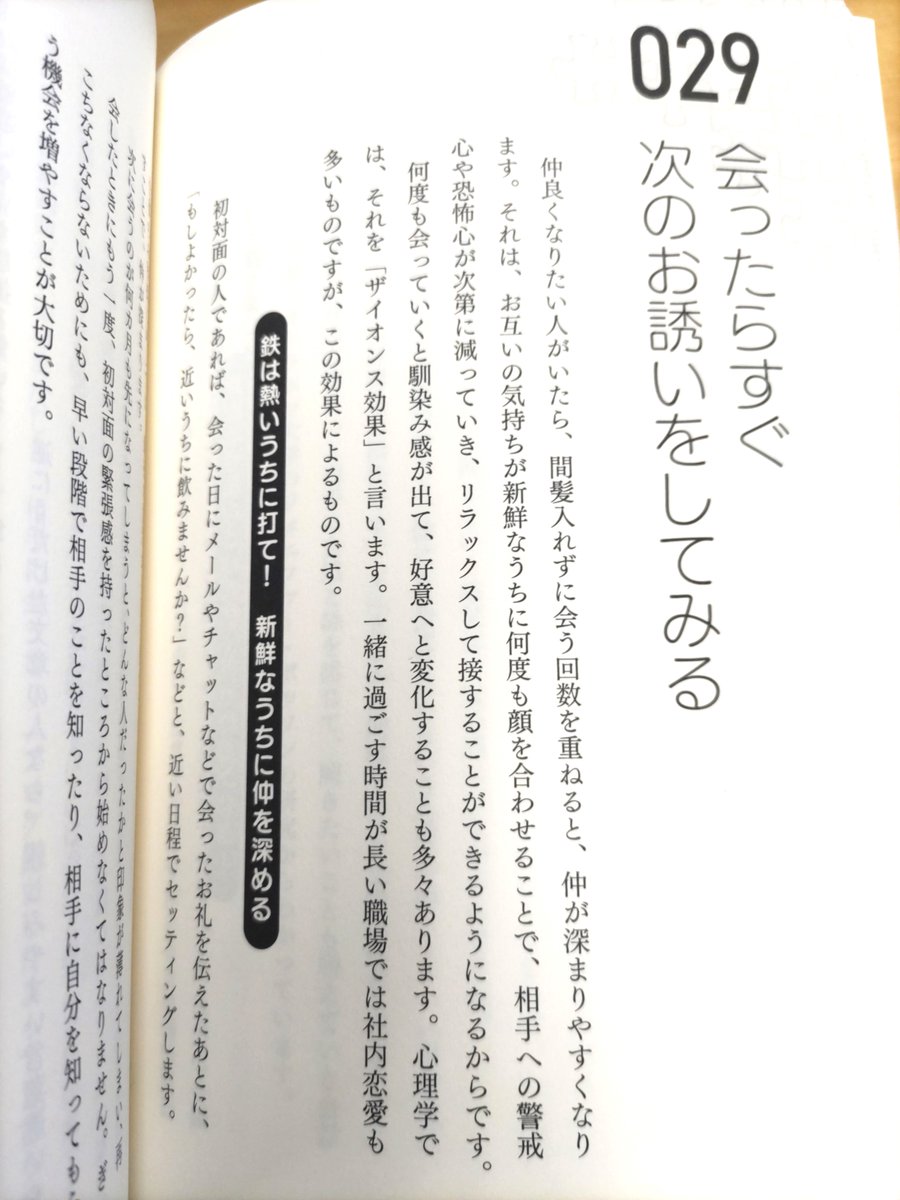 029
会ったらすぐ
次のお誘いをしてみる
仲良くなりたい人がいたら、間髪入れずに会う回数を重ねると、仲が深まりやすくなり
ます。それは、お互いの気持ちが新鮮なうちに何度も顔を合わせることで、相手への警戒
心や恐怖心が次第に減っていき、リラックスして接することができるようになるからです。
何度も会っていくと馴染み感が出て、好意へと変化することも多々あります。心理学で
は、それを「ザイオンス効果」と言います。一緒に過ごす時間が長い職場では社内恋愛も
多いものですが、この効果によるものです。
鉄は熱いうちに打て！ 新鮮なうちに仲を深める
初対面の人であれば、会った日にメールやチャットなどで会ったお礼を伝えたあとに、
「もしよかったら、近いうちに飲みませんか？」などと、近い日程でセッティングします。
次に会うのが何カ月も先になってしまうと、どんな人だったかと印象が薄れてしまい、再
会したときにもう一度、初対面の緊張感を持ったところから始めなくてはなりません。ぎ
こちなくならないためにも、早い段階で相手のことを知ったり、相手に自分を知ってもら
う機会を増やすことが大切です。